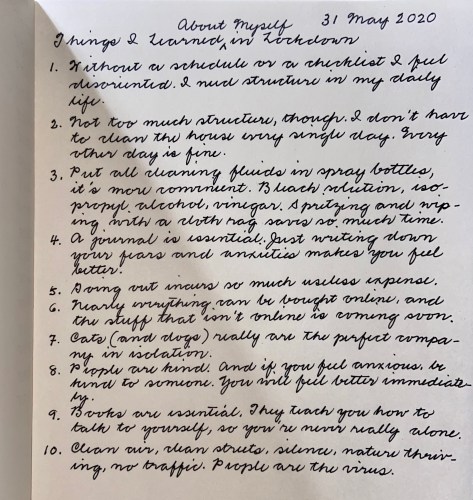 About Myself 31 May 2020
Things I Learned in Lockdown
1. Without a schedule or a checklist I feel
disoriented. I need structure in my daily
life.
2. Not too much structure, though. I don't have
to clean the house every single day. Every
other day is fine.
3. Put all cleaning fluids in spray bottles,
it's more convenient. Bleach solution, iso-
propyl alcohol, vinegar. Spritzing and wip-
ing with a cloth rag saves so much time.
4. A journal is essential. Just writing down
your fears and anxieties makes you feel
better.
5. Going out incurs so much useless expense.
6. Nearly everything can be bought online, and
the stuff that isn't online is coming soon.
7. Cats (and dogs) really are the perfect compa-
ny in isolation.
8. People are kind. And if you feel anxious, be
kind to someone. You will feel better immediate-
ly.
9. Books are essential. They teach you how to
talk to yourself, so you're never really alone.
10. Clean air, clean streets, silence, nature thriv-
ing, no traffic. People are the virus.